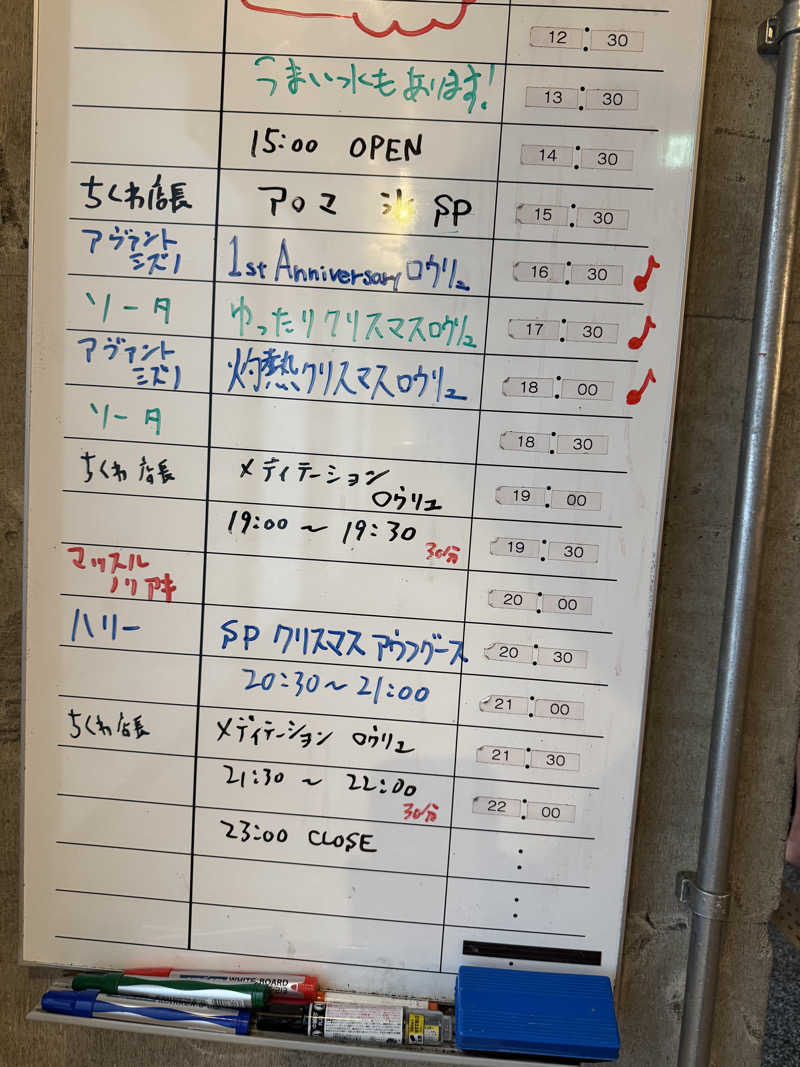 12 : 30
うまい水もあります!
13 : 30
15:00 OPEN
14 : 30
ちくわ店長 アロマ 氷 SP
15 : 30
アヴァント
ミズノ 1st Anniversaryロウリュ
16 : 30 ♪
ソータ ゆったりクリスマスロウリュ
17 : 30 ♪
アヴァント
ミズノ 灼熱クリスマスロウリュ
18 : 00 ♪
ソータ
18 : 30
ちくわ店長 メディテーション
ロウリュ
19 : 00
19:00 〜 19:30
30分
19 : 30
マッスル
ノリアキ
20 : 00
ハリー SP クリスマス アウフグース
20 : 30
20:30〜21:00
21 : 00
ちくわ店長 メディテーション ロウリュ
21 : 30
21:30 〜 22:00
30分
22 : 00
23:00 CLOSE
:
:
WHITE BOARD